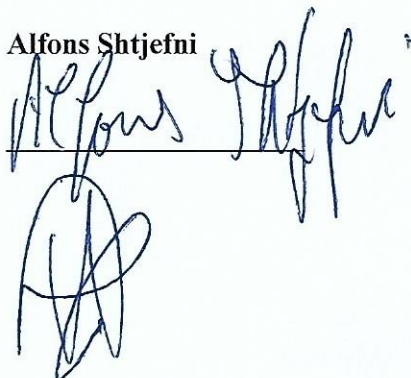 Alfons Shtjefni
Alfons Shtjefni